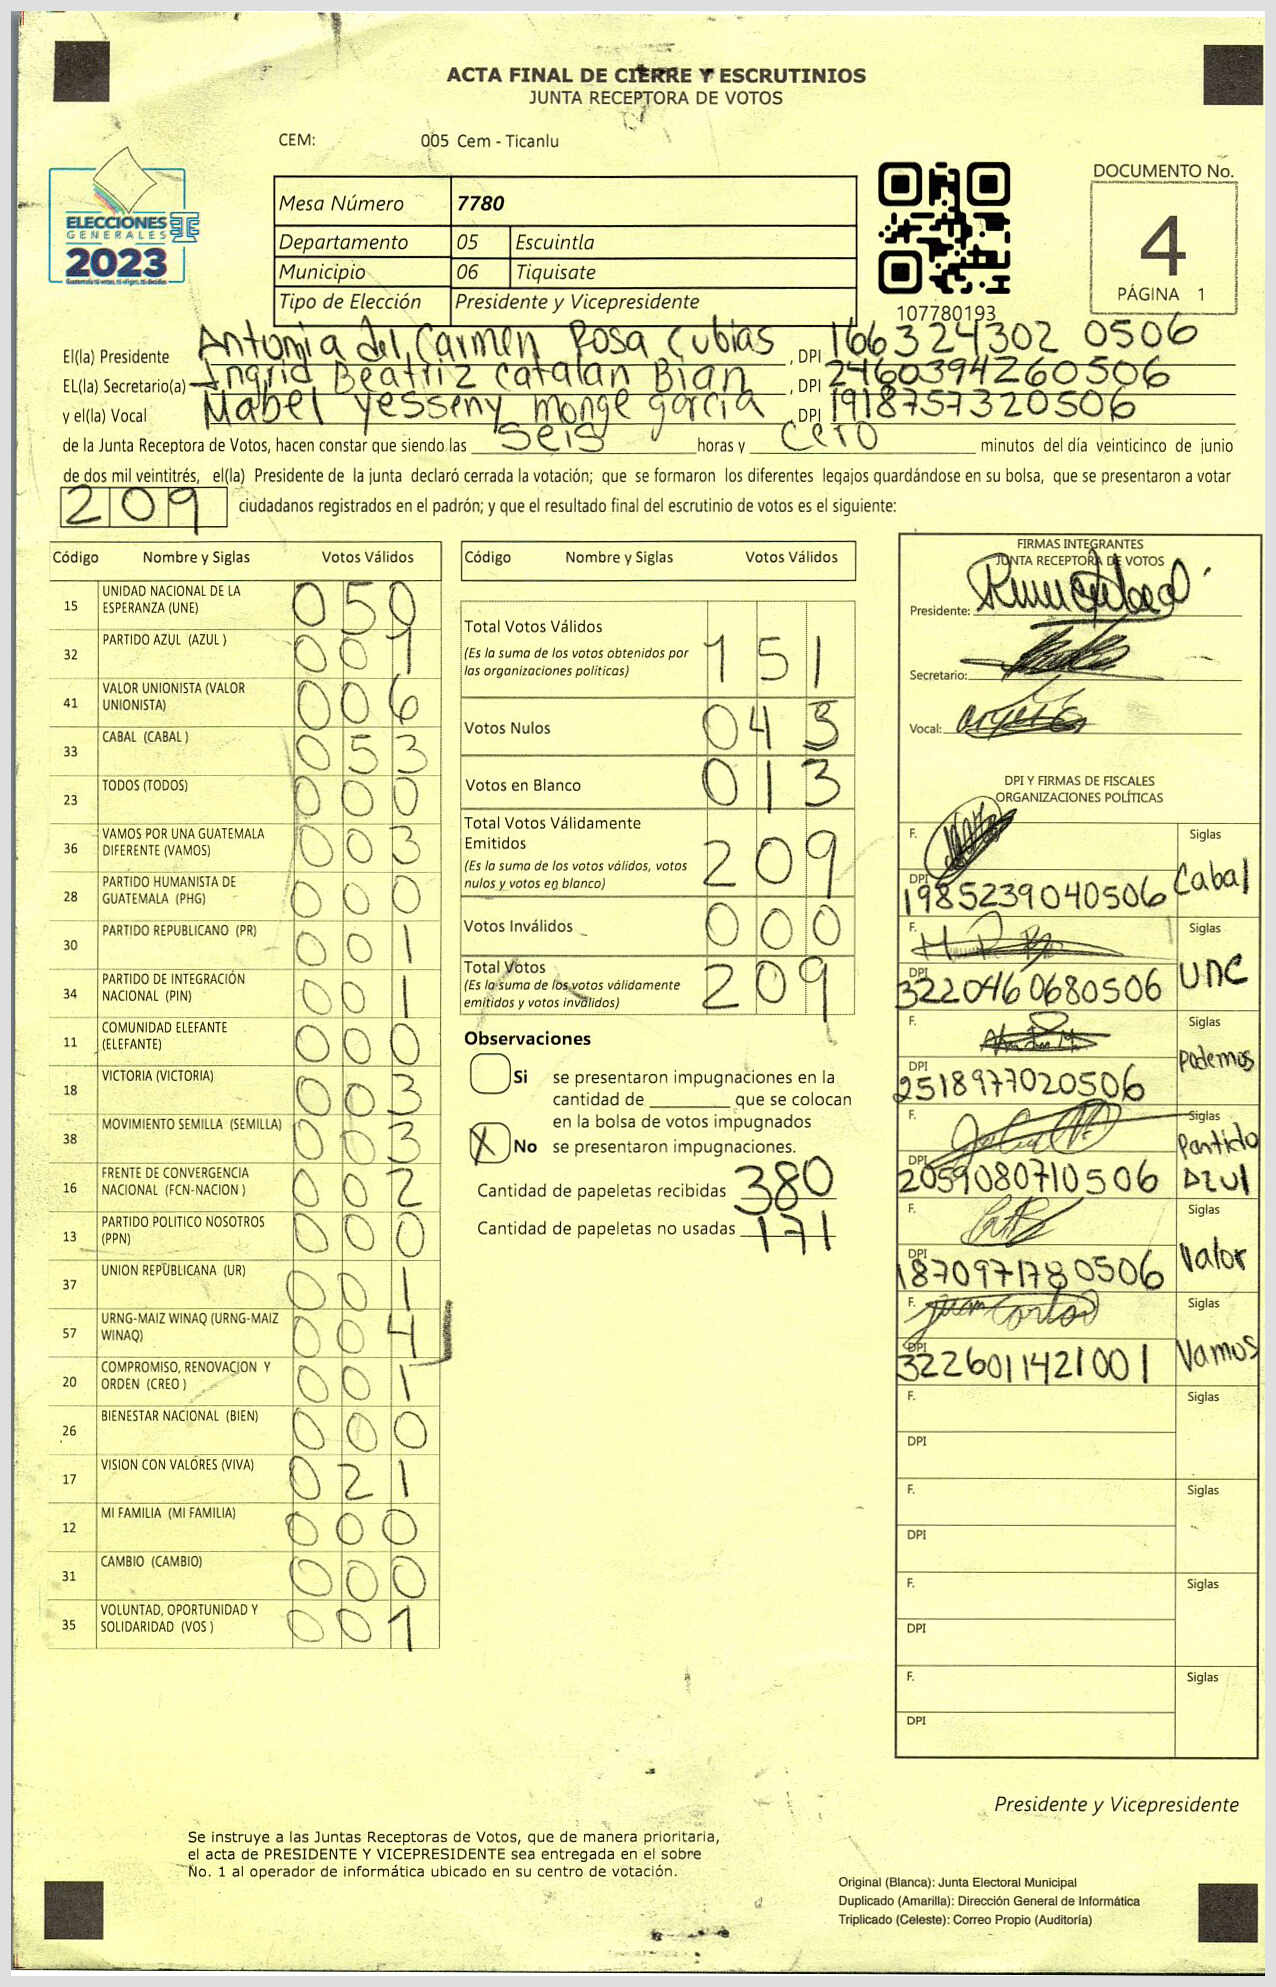 ACTA FINAL DE CIERRE Y ESCRUTINIOS
JUNTA RECEPTORA DE VOTOS
CEM: 005 Cem - Ticanlu
ELECCIONES
GENERALES
2023
Mesa Número 7780
Departamento 05 Escuintla
Municipio 06 Tiquisate
Tipo de Elección Presidente y Vicepresidente
107780193
DOCUMENTO No.
4
PÁGINA 1
El(la) Presidente Antonia del Carmen Rosa Cubias , DPI 166324302 0506
EL(la) Secretario(a) Ingrid Beatriz Catalan Bian , DPI 2460394260506
y el(la) Vocal Mabel Yesseny monge garcia , DPI 1918757320506
de la Junta Receptora de Votos, hacen constar que siendo las seis horas y cero minutos del día veinticinco de junio
de dos mil veintitrés, el(la) Presidente de la junta declaró cerrada la votación; que se formaron los diferentes legajos guardándose en su bolsa, que se presentaron a votar
209 ciudadanos registrados en el padrón; y que el resultado final del escrutinio de votos es el siguiente:
Código Nombre y Siglas Votos Válidos
15 UNIDAD NACIONAL DE LA ESPERANZA (UNE) 050
32 PARTIDO AZUL (AZUL ) 001
41 VALOR UNIONISTA (VALOR UNIONISTA) 006
33 CABAL (CABAL ) 053
23 TODOS (TODOS) 000
36 VAMOS POR UNA GUATEMALA DIFERENTE (VAMOS) 003
28 PARTIDO HUMANISTA DE GUATEMALA (PHG) 000
30 PARTIDO REPUBLICANO (PR) 001
34 PARTIDO DE INTEGRACIÓN NACIONAL (PIN) 001
11 COMUNIDAD ELEFANTE (ELEFANTE) 000
18 VICTORIA (VICTORIA) 003
38 MOVIMIENTO SEMILLA (SEMILLA) 003
16 FRENTE DE CONVERGENCIA NACIONAL (FCN-NACION ) 002
13 PARTIDO POLITICO NOSOTROS (PPN) 000
37 UNION REPUBLICANA (UR) 001
57 URNG-MAIZ WINAQ (URNG-MAIZ WINAQ) 004
20 COMPROMISO, RENOVACION Y ORDEN (CREO ) 001
26 BIENESTAR NACIONAL (BIEN) 000
17 VISION CON VALORES (VIVA) 021
12 MI FAMILIA (MI FAMILIA) 000
31 CAMBIO (CAMBIO) 000
35 VOLUNTAD, OPORTUNIDAD Y SOLIDARIDAD (VOS ) 001
Código Nombre y Siglas Votos Válidos
Total Votos Válidos 151
(Es la suma de los votos obtenidos por
las organizaciones políticas)
Votos Nulos 043
Votos en Blanco 013
Total Votos Válidamente
Emitidos 209
(Es la suma de los votos válidos, votos
nulos y votos en blanco)
Votos Inválidos 000
Total Votos 209
(Es la suma de los votos válidamente
emitidos y votos inválidos)
Observaciones
Si se presentaron impugnaciones en la
cantidad de ________ que se colocan
en la bolsa de votos impugnados
X No se presentaron impugnaciones.
Cantidad de papeletas recibidas 380
Cantidad de papeletas no usadas 171
FIRMAS INTEGRANTES
JUNTA RECEPTORA DE VOTOS
Presidente:
Secretario:
Vocal:
DPI Y FIRMAS DE FISCALES
ORGANIZACIONES POLÍTICAS
F. Siglas
DPI 1985239040506 Cabal
F. Siglas
DPI 3220460680506 UNE
F. Siglas
DPI 2518977020506 Podemos
F. Siglas
DPI 2059080710506 Partido Azul
F. Siglas
DPI 1870971780506 Valor
F. Juan Carlos Siglas
DPI 3226011421001 Vamos
F. Siglas
DPI
F. Siglas
DPI
F. Siglas
DPI
F. Siglas
DPI
Presidente y Vicepresidente
Se instruye a las Juntas Receptoras de Votos, que de manera prioritaria,
el acta de PRESIDENTE Y VICEPRESIDENTE sea entregada en el sobre
No. 1 al operador de informática ubicado en su centro de votación.
Original (Blanca): Junta Electoral Municipal
Duplicado (Amarilla): Dirección General de Informática
Triplicado (Celeste): Correo Propio (Auditoría)